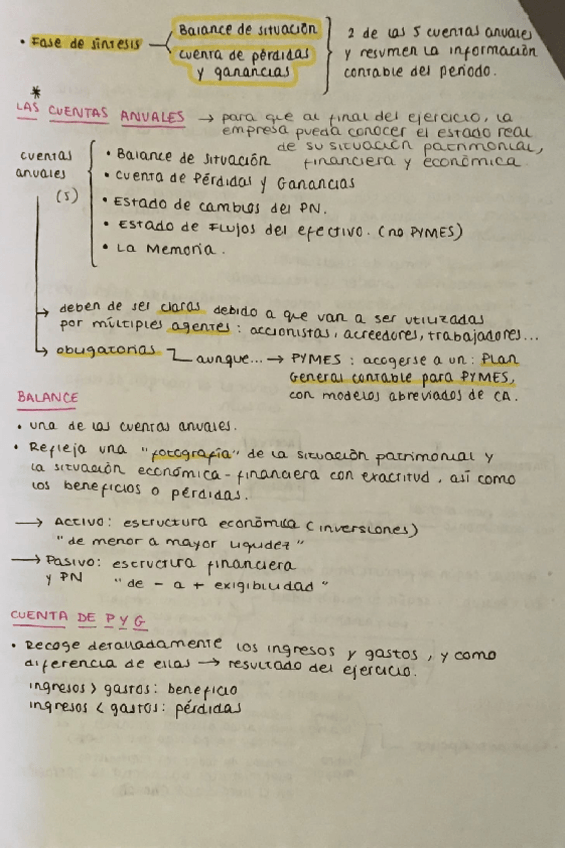 • Fase de síntesis — Balance de situación
cuenta de pérdidas
y ganancias
2 de las 5 cuentas anuales
y resumen la información
contable del periodo.
*
LAS CUENTAS ANUALES → para que al final del ejercicio, la
empresa pueda conocer el estado real
de su situación patrimonial,
financiera y económica.
cuentas
anuales
(5)
• Balance de situación
• Cuenta de Pérdidas y Ganancias
• Estado de cambios del PN.
• Estado de Flujos del efectivo. (no PYMES)
• La Memoria.
→ deben de ser claras debido a que van a ser utilizadas
por múltiples agentes: accionistas, acreedores, trabajadores...
→ obligatorias aunque... → PYMES: acogerse a un: Plan
General contable para PYMES,
con modelos abreviados de CA.
BALANCE
• una de las cuentas anuales.
• Refleja una "fotografía" de la situación patrimonial y
la situación económica-financiera con exactitud, así como
los beneficios o pérdidas.
→ Activo: estructura económica (inversiones)
"de menor a mayor liquidez"
→ Pasivo: estructura financiera
y PN "de - a + exigibilidad"
CUENTA DE P Y G
• Recoge detalladamente los ingresos y gastos, y como
diferencia de ellas → resultado del ejercicio.
ingresos > gastos: beneficio
ingresos < gastos: pérdidas